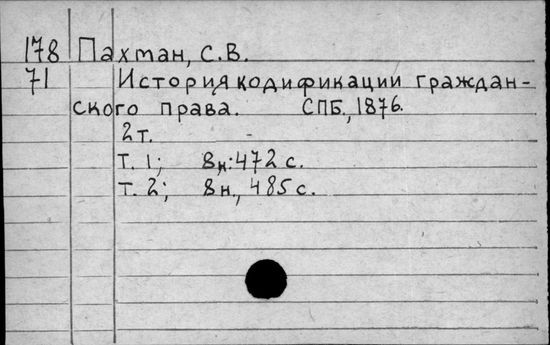 178 Пахман, С.В.
71 История кодификации граждан-
ского права. СПБ., 1876.
2 т.
Т. 1; 8н.: 472 с.
Т. 2; 8н., 485 с.